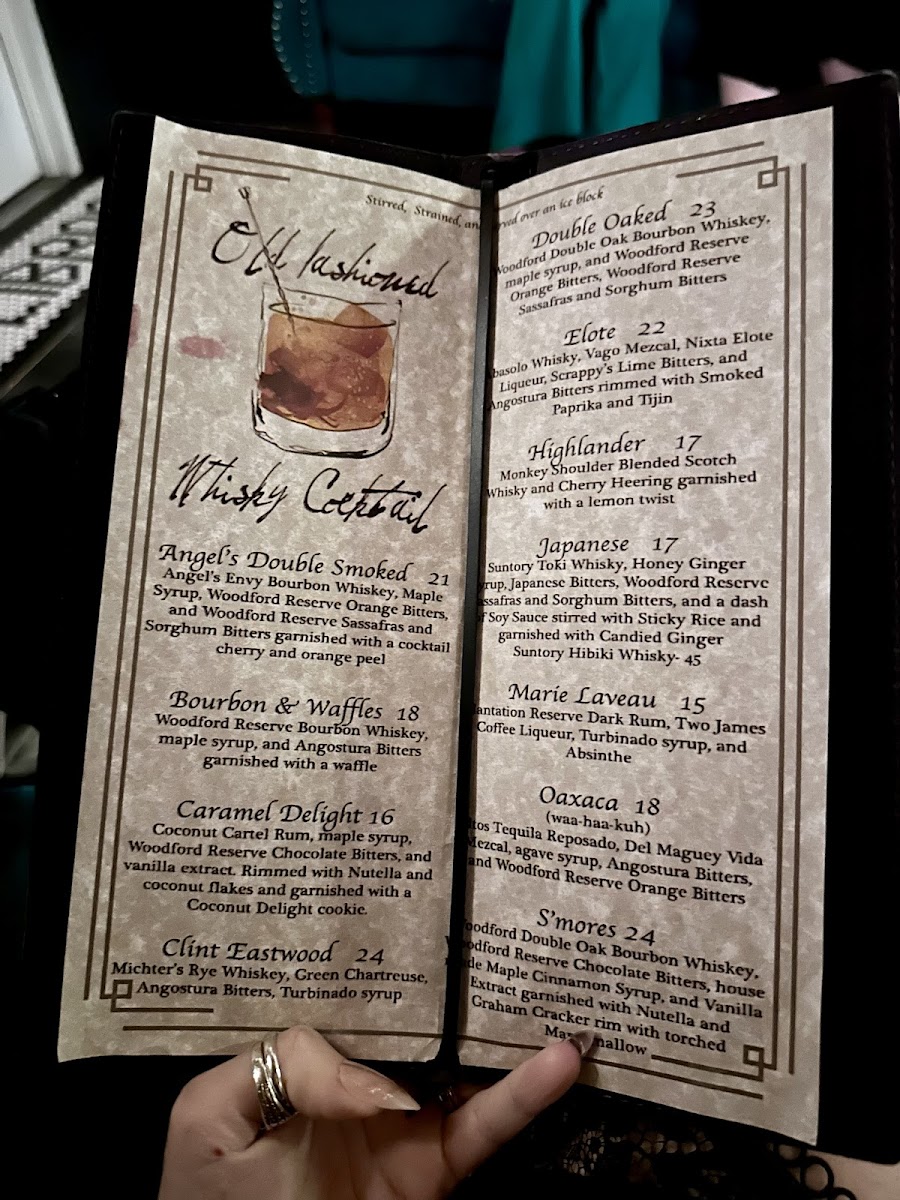 Stirred, Strained, an
rved over an ice block
Old Fashioned
Whisky Cocktail
Angel's Double Smoked 21
Angel's Envy Bourbon Whiskey, Maple
Syrup, Woodford Reserve Orange Bitters,
and Woodford Reserve Sassafras and
Sorghum Bitters garnished with a cocktail
cherry and orange peel
Bourbon & Waffles 18
Woodford Reserve Bourbon Whiskey,
maple syrup, and Angostura Bitters
garnished with a waffle
Caramel Delight 16
Coconut Cartel Rum, maple syrup,
Woodford Reserve Chocolate Bitters, and
vanilla extract. Rimmed with Nutella and
coconut flakes and garnished with a
Coconut Delight cookie.
Clint Eastwood 24
Michter's Rye Whiskey, Green Chartreuse,
Angostura Bitters, Turbinado syrup
Double Oaked 23
Woodford Double Oak Bourbon Whiskey,
maple syrup, and Woodford Reserve
Orange Bitters, Woodford Reserve
Sassafras and Sorghum Bitters
Elote 22
basolo Whisky, Vago Mezcal, Nixta Elote
Liqueur, Scrappy's Lime Bitters, and
Angostura Bitters rimmed with Smoked
Paprika and Tijin
Highlander 17
Monkey Shoulder Blended Scotch
Whisky and Cherry Heering garnished
with a lemon twist
Japanese 17
Suntory Toki Whisky, Honey Ginger
rup, Japanese Bitters, Woodford Reserve
assafras and Sorghum Bitters, and a dash
of Soy Sauce stirred with Sticky Rice and
garnished with Candied Ginger
Suntory Hibiki Whisky- 45
Marie Laveau 15
antation Reserve Dark Rum, Two James
Coffee Liqueur, Turbinado syrup, and
Absinthe
Oaxaca 18
(waa-haa-kuh)
tos Tequila Reposado, Del Maguey Vida
Mezcal, agave syrup, Angostura Bitters,
and Woodford Reserve Orange Bitters
S'mores 24
oodford Double Oak Bourbon Whiskey,
odford Reserve Chocolate Bitters, house
de Maple Cinnamon Syrup, and Vanilla
Extract garnished with Nutella and
Graham Cracker rim with torched
Mar mallow